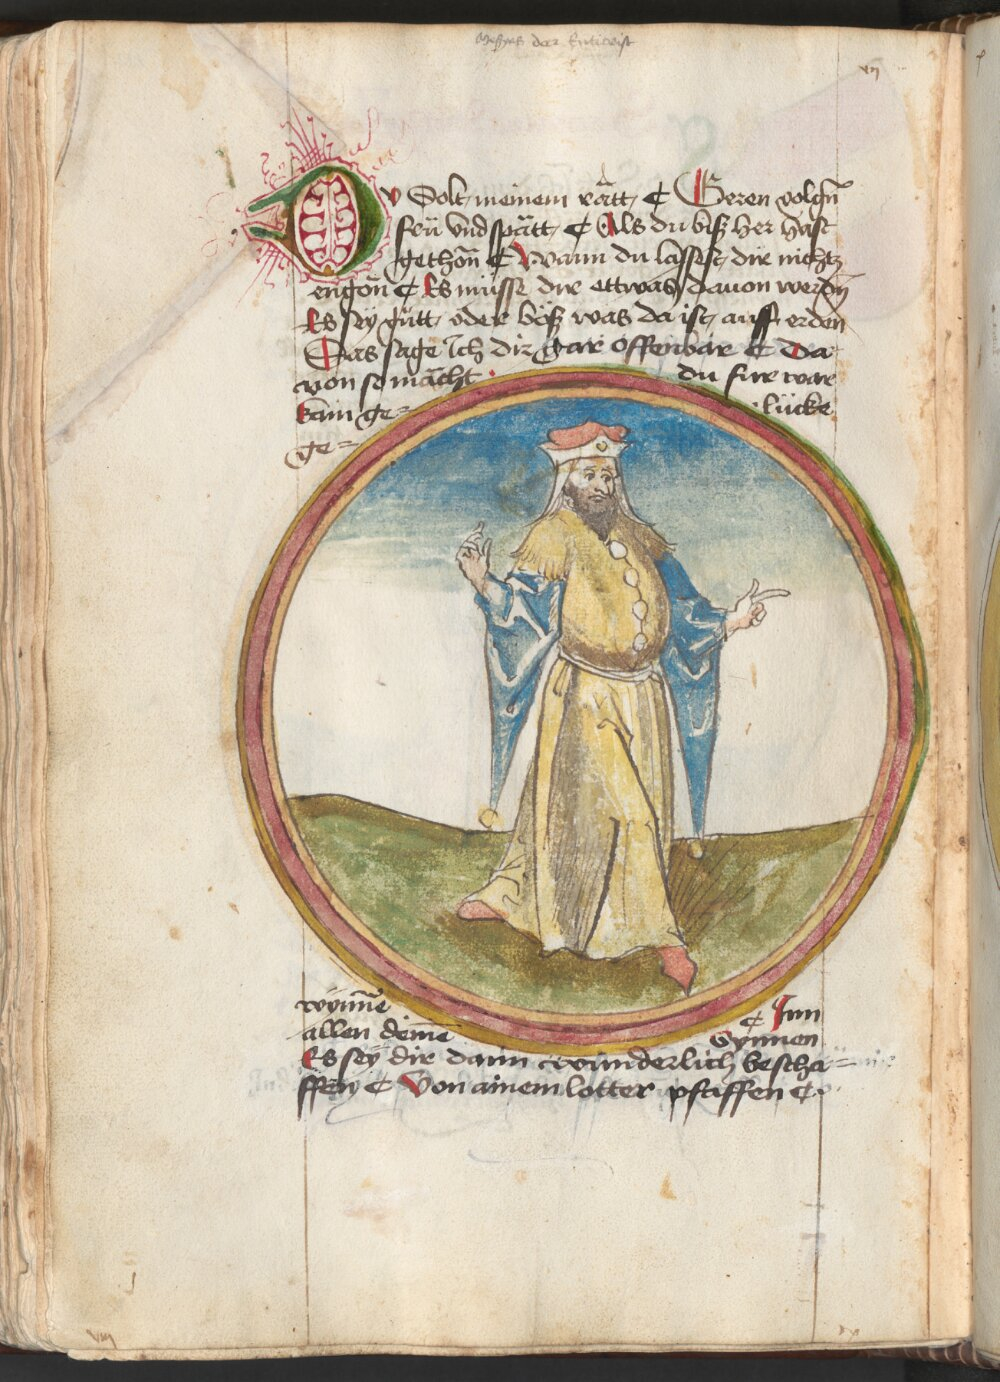 der
vij
Du Solt meinem rätt ¢ Geren volgñ
frü vnd spätt ¢ Als du biß her hast
gethon̄ ¢ Wann du lassest dir nichtz
engon̄ ¢ Es müsse dir ettwas dauon werdn̄
Es seÿ gůtt oder böß was da ist auff erden
Das sage Ich dir gar offenbar ¢ Da
von so mācht du fur war
kain ge= lücke
ge=
wÿnn̄e ¢ Inn
allen dein̄e Sÿnnen
Es seÿ dir dann wunderlich bescha=
ffen ¢ Von ainem lotter pfaffen ¢